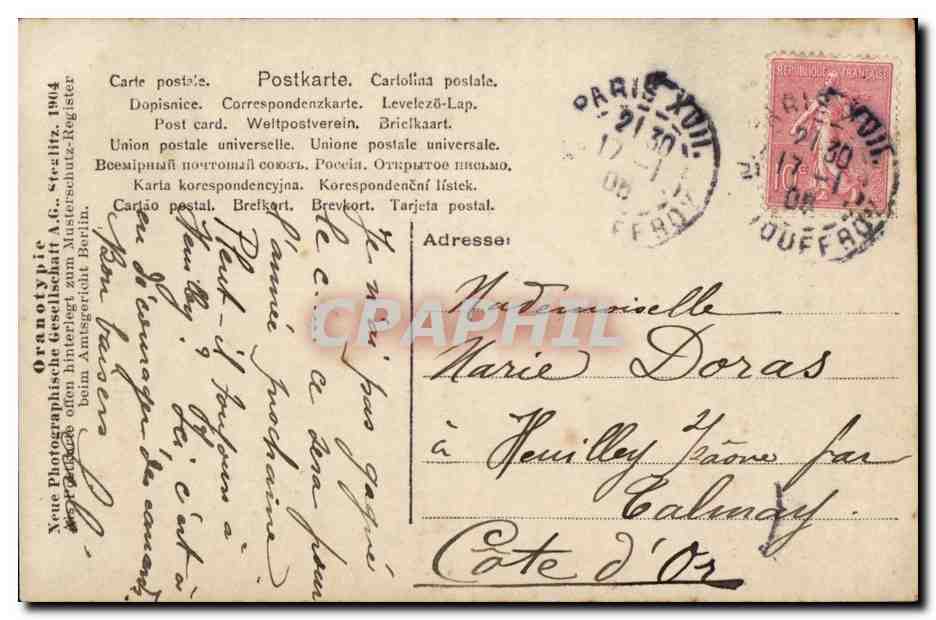 Carte postale. Postkarte. Cartolina postale.
Dopisnice. Correspondenzkarte. Levelező-Lap.
Post card. Weltpostverein. Briefkaart.
Union postale universelle. Unione postale universale.
Всемірный почтовый союзъ. Россія. Открытое письмо.
Karta korespondencyjna. Korespondenční lístek.
Cartão postal. Brefkort. Brevkort. Tarjeta postal.
Adresse:
Oranotypie
Neue Photographische Gesellschaft A.G., Steglitz. 1904
Als Postkarte offen hinterlegt zum Musterschutz-Register
beim Amtsgericht Berlin.
Je n'ai pas gagné
le ce sera pour
l'année prochaine
Pleut-il toujours à
Heuilley? Ici c'est à
en déconnager des canards
Bon baisers
Mademoiselle
Marie Doras
à Heuilley s/Saône par
Talmay
Côte d'Or
PARIS XVII.
21 30
17 - 1
08
JOUFFROY
REPUBLIQUE FRANÇAISE
10c
PARIS XVII.
21 30
17 - 1
08
JOUFFROY
CPAPHIL